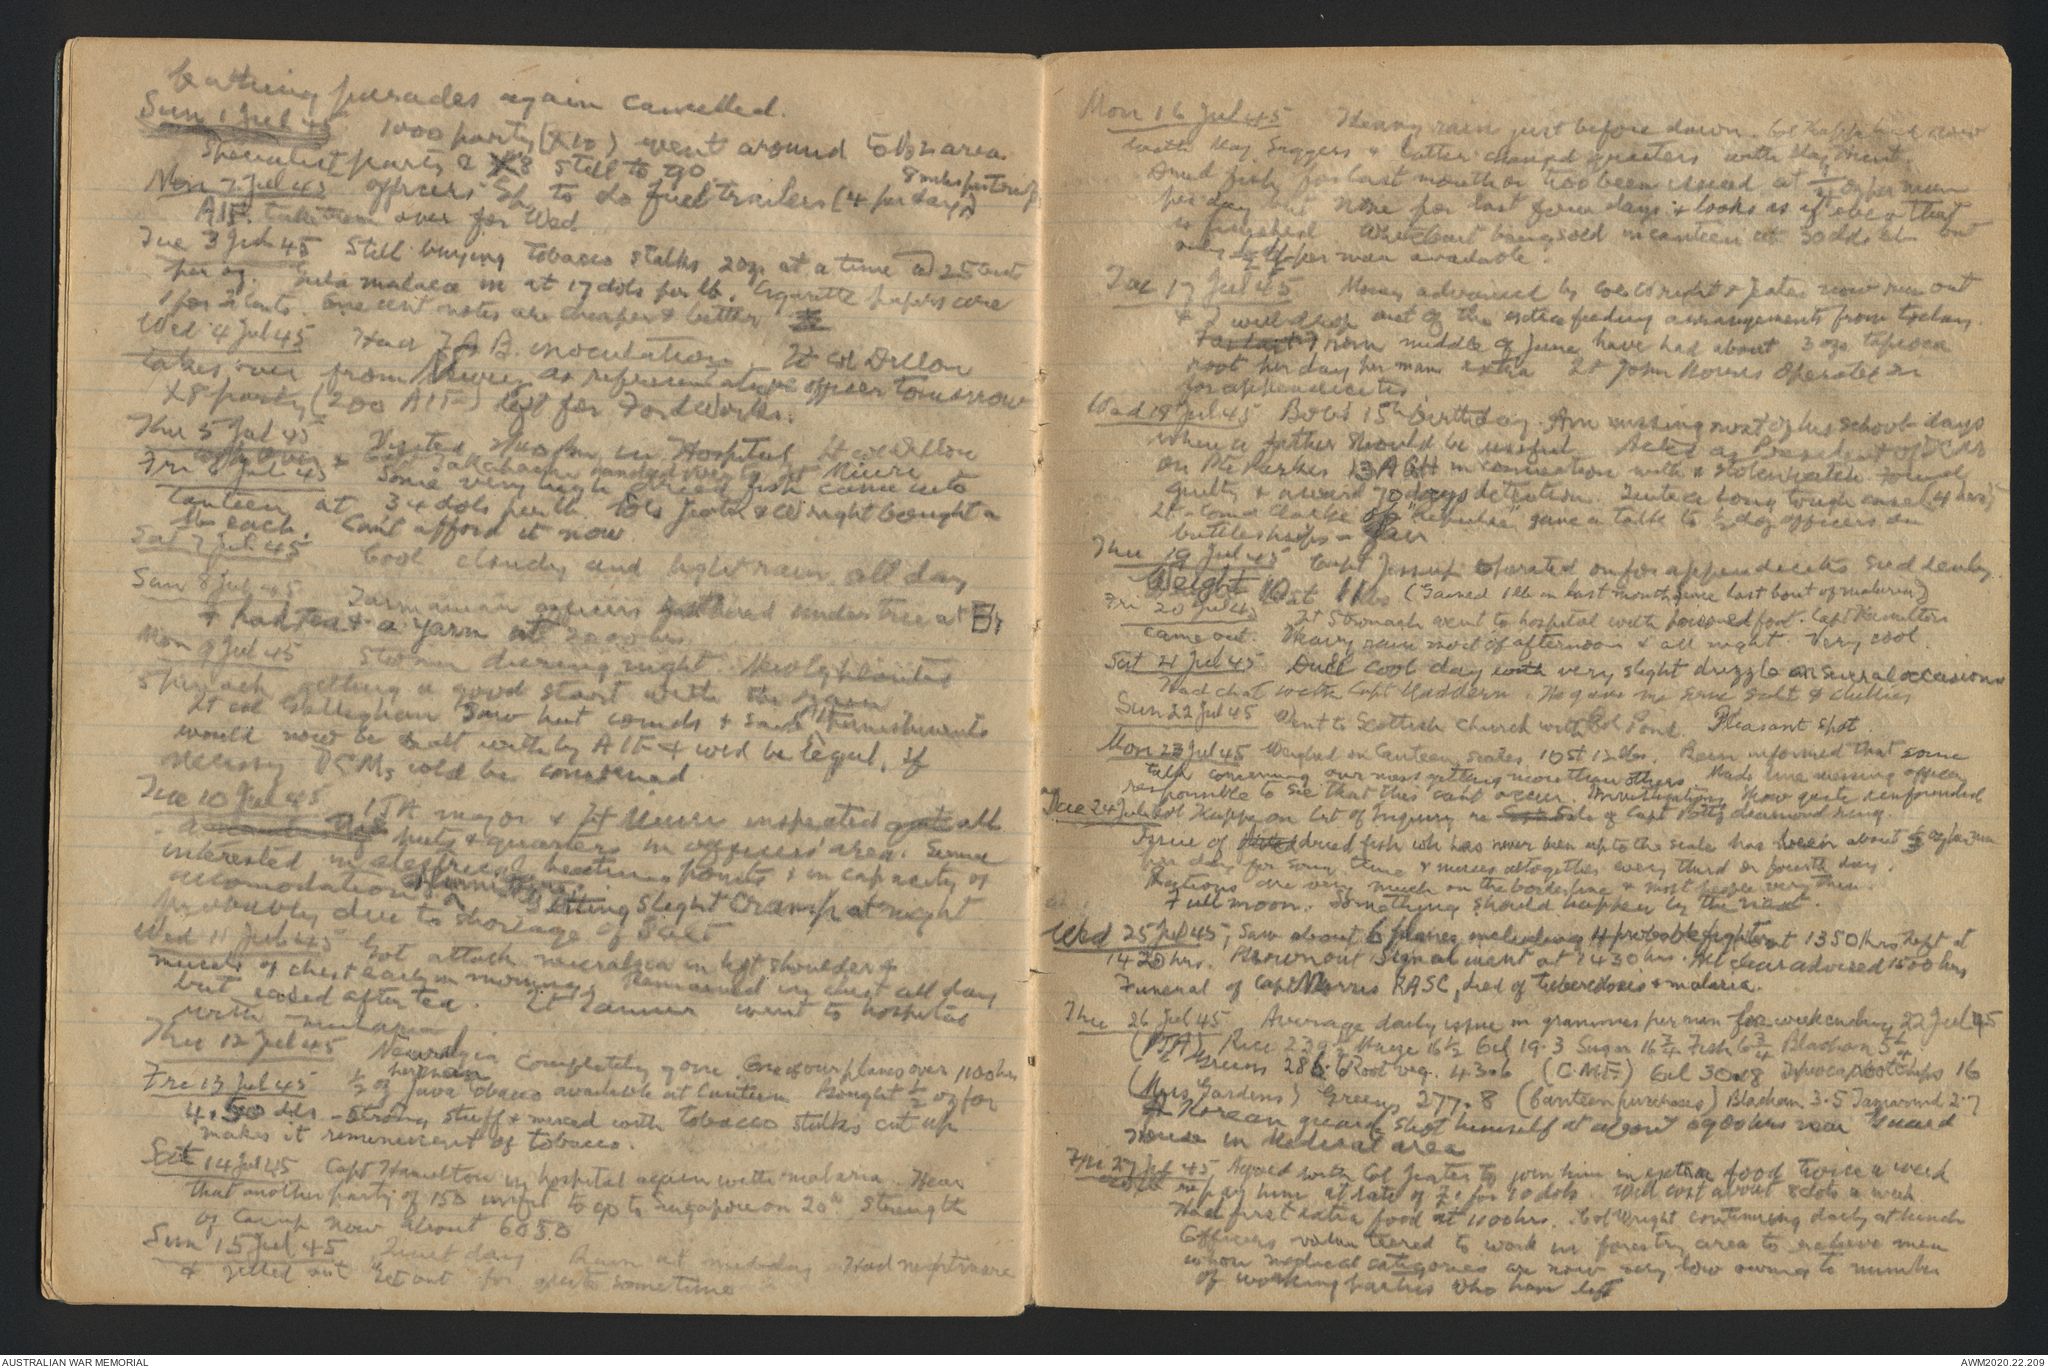 bathing parades again cancelled.
Sun 1 Jul 45 1000 party (X10) went around to area
Specialist party & X8 still to go
8 miles
Mon 2 Jul 45 officers Sh to do fuel trailers (4 per day)
AIF. take them over for Wed
Tue 3 Jul 45 Still buying tobacco stalks 2 ozs at a time @ 25 cents
per oz. Gula malacca in at 17 dols per lb. Cigarette papers are
1 for 2 cents. One cent notes are cheaper & better
Wed 4 Jul 45 Had T.A.B. inoculation Lt Col Dillon
takes over from as representative officer tomorrow
X8 party (200 AIF) left for Ford Works.
Thu 5 Jul 45 Visited in Hospital Lt Col Dillon
took over & handed over to Lt Miura
Fri 6 Jul 45 Some very high dried fish came into
Canteen at 34 dols per lb. Cols & Wright bought a
lb each. Can't afford it now
Sat 7 Jul 45 Cool cloudy and light rain all day
Sun 8 Jul 45 Tasmanian officers gathered under tree at
& had tea & a yarn till 2200 hrs.
Mon 9 Jul 45 Storm during night. Newly planted
spinach getting a good start with the rain
Lt Col Galleghan saw hut comds & said AIF punishments
would now be dealt with by AIF & wld be legal. If
necessary DCMs wld be convened
Tue 10 Jul 45 IJA major & Lt Miura inspected all
huts & quarters in officers' area. Seemed
interested in electrical heating points & in capacity of
accomodation & furniture. Getting slight cramp at night
probably due to shortage of salt
Wed 11 Jul 45 Got attack neuralgia in left shoulder &
muscles of chest early in morning. Remained in chest all day
but eased after tea. Lt Tanner went to hospital
with malaria
Thu 12 Jul 45 Neuralgia completely gone One of our planes over 1100 hrs
Fri 13 Jul 45 ½ oz per man Java tobacco available at Canteen Bought ½ oz for
4.50 dls. - Strong stuff & mixed with tobacco stalks cut up
makes it reminiscent of tobacco.
Sat 14 Jul 45 Capt Hamilton in hospital again with malaria. Hear
that another party of 150 unfit to go to Singapore on 20th Strength
of Camp now about 6050
Sun 15 Jul 45 Quiet day Rain at midday Had nightmare
& yelled out "Get out" for quite sometime
Mon 16 Jul 45 Heavy rain just before dawn. Col Kappe had row
with Maj Saggers & latter changed quarters with Maj Hunt.
Dried fish for last month or two been issued at oz per man
per day but none for last few days & looks as if even that
is finished Whitebait being sold in canteen at 30 dols lb but
only lb per man available.
Tue 17 Jul 45 Money advanced by Cols Wright & now run out
& I will drop out of the extra feeding arrangements from today.
From middle of June have had about 3 ozs tapioca
root per day per man extra Lt John Morris operated on
for appendicitis
Wed 18 Jul 45 Bob's 15th birthday. Am missing most of his school days
when a father should be useful. Acted as President of DCM
on Pte Parker 13 AGH in connection with a stolen watch Found
guilty & award 70 days detention. Quite a long tough case (4 hrs)
Lt-Comd Clarke of "Repulse" gave a talk to ½ doz officers on
battleships - fair
Thu 19 Jul 45 Capt Jessup operated on for appendicitis suddenly
Weight 10 st 11 lbs (Gained 1 lb in last month since last bout of malaria)
Fri 20 Jul 45 Lt Stomach went to hospital with poisoned foot. Capt Hamilton
came out. Heavy rain most of afternoon & all night. Very cool
Sat 21 Jul 45 Dull cool day with very slight drizzle on several occasions
Had chat with Capt Maddern. He gave me some salt & chillies
Sun 22 Jul 45 Went to Scottish Church with Col Pond. Pleasant spot
Mon 23 Jul 45 Weighed on Canteen scales 10 st 12 lbs. Been informed that some
talk concerning our mess getting more than others Made line messing officer
responsible to see that this can't occur. Investigations show quite unfounded
Tue 24 Jul 45 Col Kappe on Crt of Inquiry re Sale of Capt Potts diamond ring.
Issue of dried fish wh has never been up to the scale has been about oz per man
per day for some time & misses altogether every third or fourth day.
Rations are very much on the borderline & most people very thin.
Full moon. Something should happen by the next.
Wed 25 Jul 45, Saw about 6 planes, including 4 probable fighters at 1350 hrs, Kept at
1420 hrs. Brownout signal went at 1430 hrs. All clear advised 1500 hrs
Funeral of Capt Morris RASC, died of tuberculosis & malaria.
Thu 26 Jul 45 Average daily issue in grammes per man for week ending 22 Jul 45
(IJA) Rice 229 Maize 16½ Oil 19.3 Sugar 16¾ Fish 6¾ Blachan 5¼
Greens 286.6 Root veg. 43.6 (C.M.F.) Oil 30.8 Tapioca root chips 16
(Gardens) Greens 277.8 (Canteen purchases) Blachan 3.5 Tamarind 2.7
A Korean guard shot himself at about 0900 hrs near Guard
House in Medical area
Fri 27 Jul 45 Agreed with Col to join him in extra food twice a week
repay him at rate of £1 for 10 dols. Will cost about 8 dols a week
Had first extra food at 1100 hrs. Col Wright continuing daily at lunch
Officers volunteered to work in forestry area to relieve men
whose medical categories are now very low owing to number
of working parties who have left
AUSTRALIAN WAR MEMORIAL
AWM2020.22.209